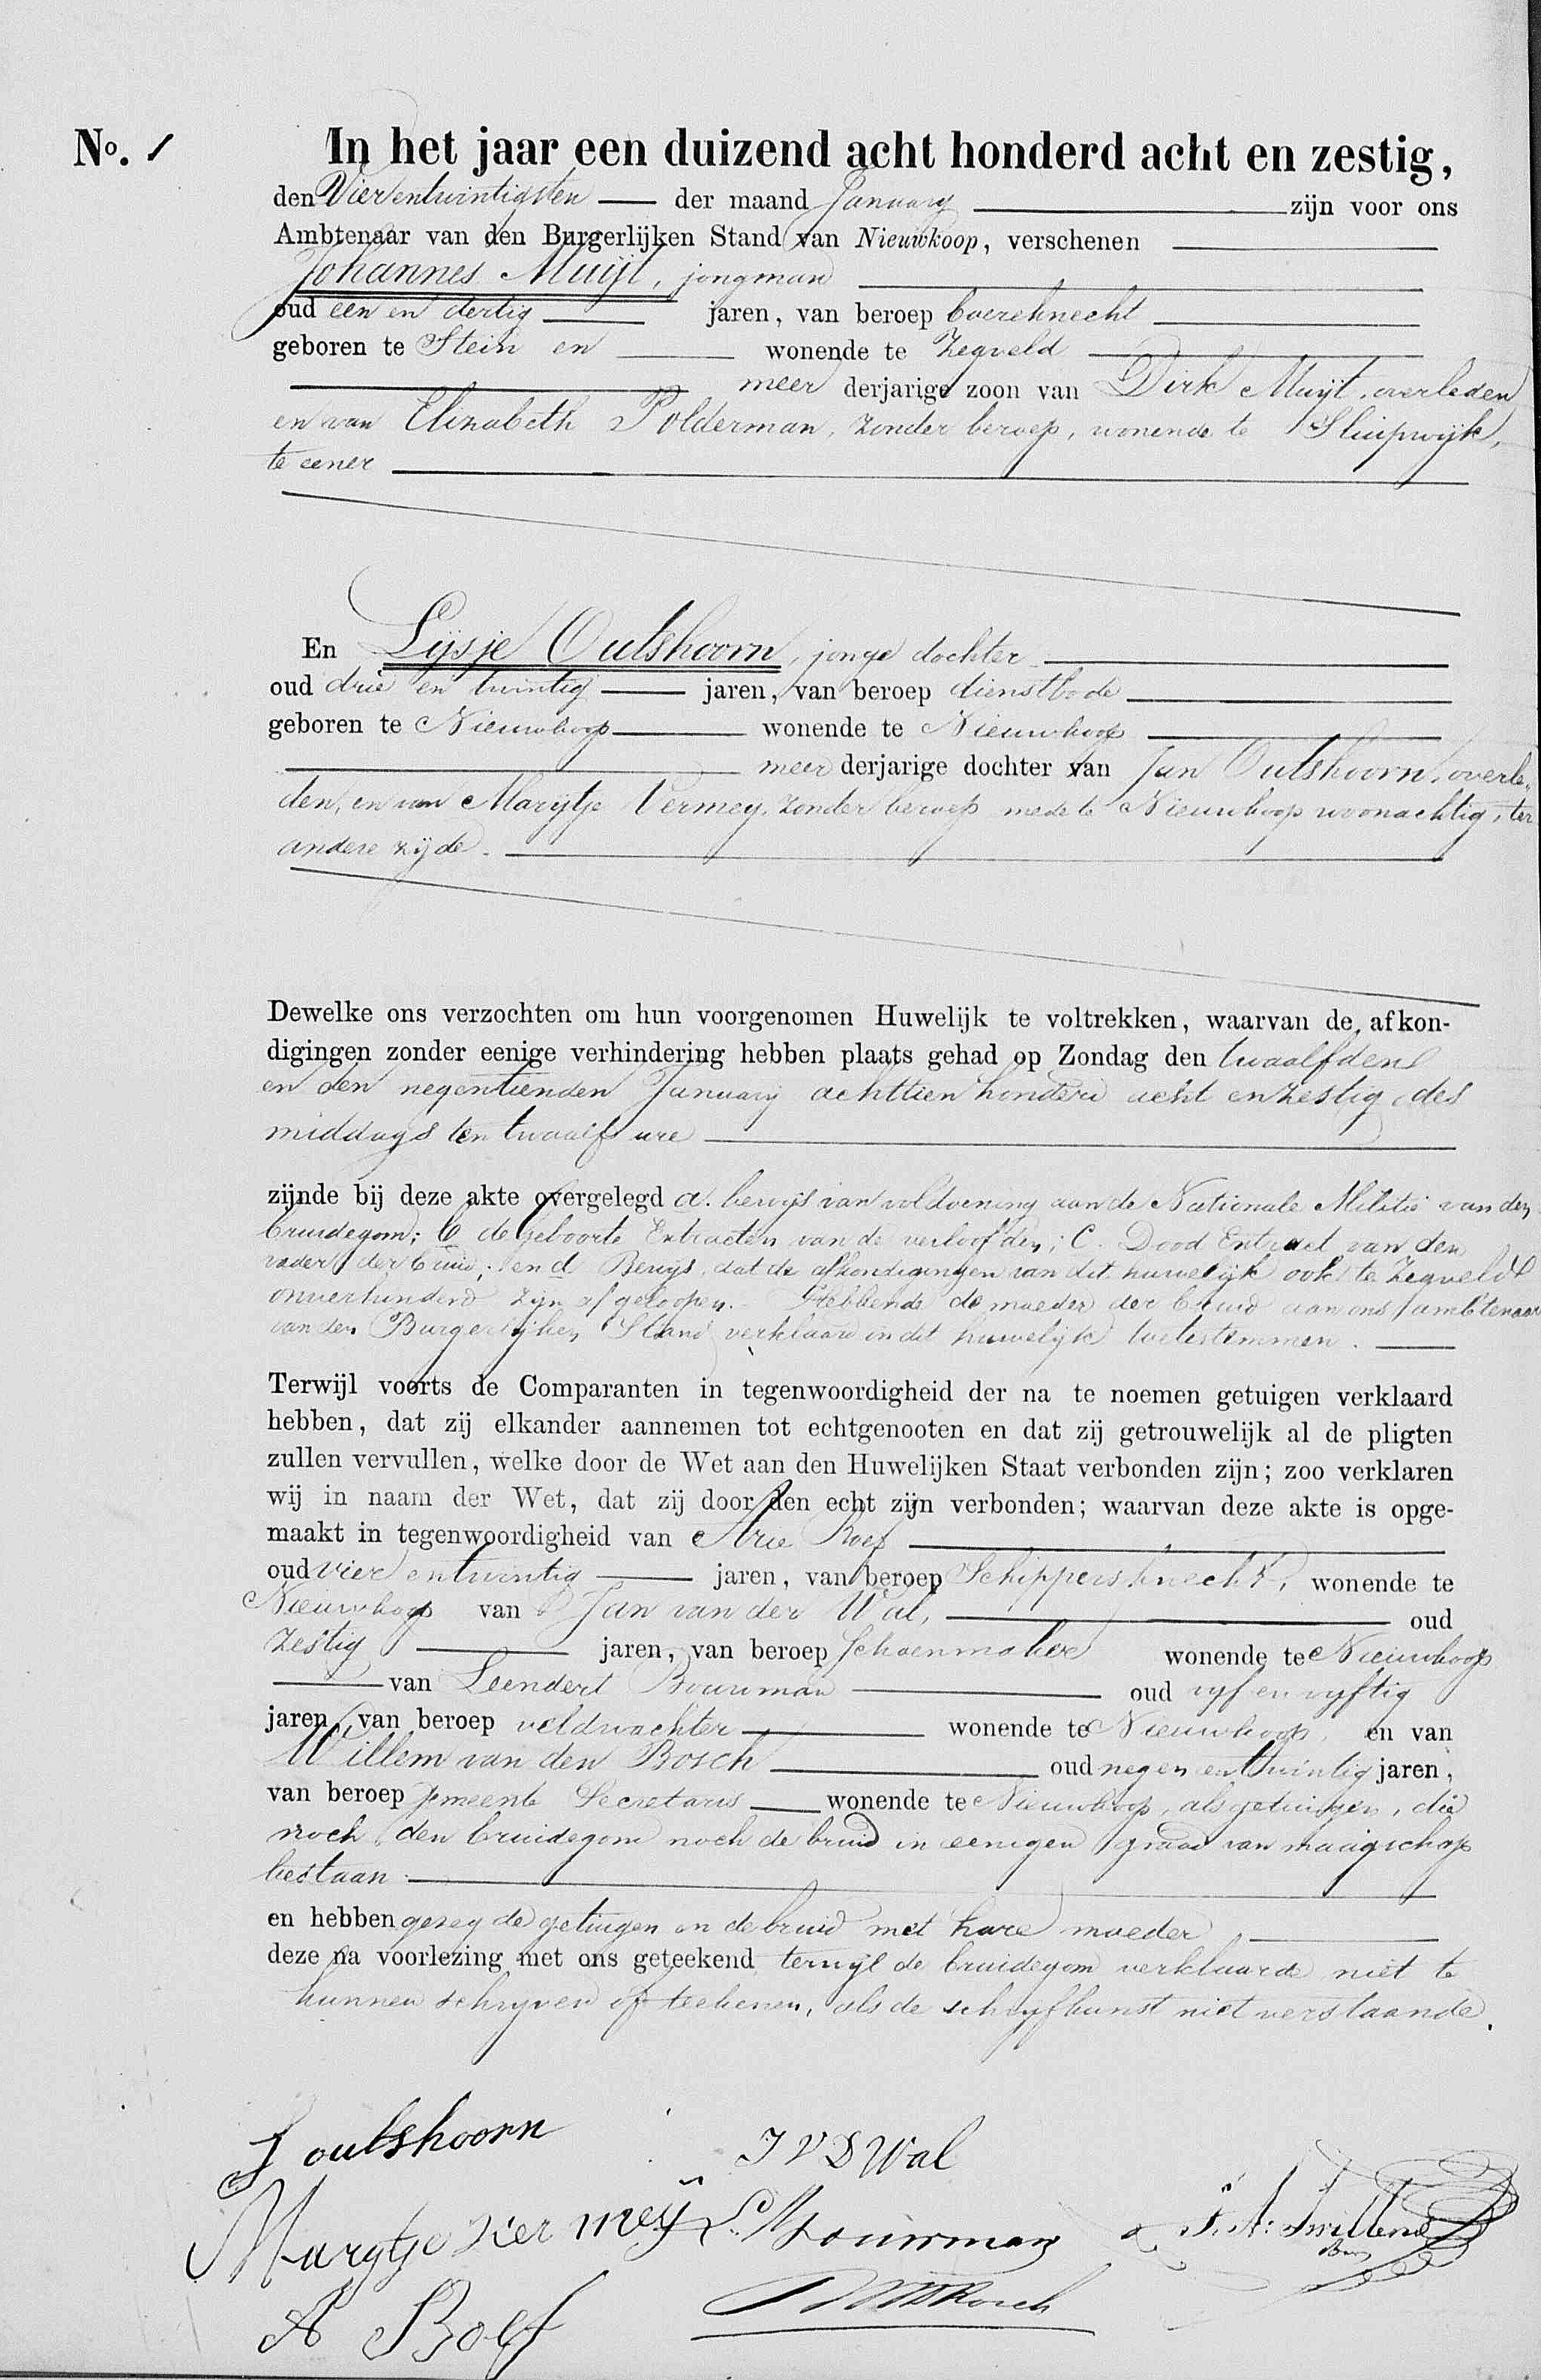 No. 1
In het jaar een duizend acht honderd acht en zestig,
den Vierentwintigsten der maand January zijn voor ons
Ambtenaar van den Burgerlijken Stand van Nieuwkoop, verschenen
Johannes Muijt, jongman
oud een en dertig jaren, van beroep boereknecht
geboren te Stein en wonende te Zegveld
meer derjarige zoon van Dirk Muijt, overleden
en van Elizabeth Polderman, zonder beroep, wonende te Sluipwijk,
te eener
En Lijsje Outshoorn, jonge dochter
oud drie en twintig jaren, van beroep dienstbode
geboren te Nieuwkoop wonende te Nieuwkoop
meer derjarige dochter van Jan Outshoorn, overle-
den, en van Marijtje Vermey, zonder beroep mede te Nieuwkoop woonachtig, ter
andere zijde.
Dewelke ons verzochten om hun voorgenomen Huwelijk te voltrekken, waarvan de afkon-
digingen zonder eenige verhindering hebben plaats gehad op Zondag den twaalfden
en den negentienden January achttien honderd acht en zestig des
middags ten twaalf ure
zijnde bij deze akte overgelegd a. bewijs van voldoening aan de Nationale Militie van den
bruidegom; b de geboorte Extracten van de verloofden; C. Dood Extract van den
vader der bruid; en d Bewijs dat de afkondigingen van dit huwelijk ook te Zegveld
onverhinderd zijn afgeloopen. Hebbende de moeder der bruid aan ons ambtenaar
van den Burgerlijken Stand verklaard in dit huwelijk toetestemmen.
Terwijl voorts de Comparanten in tegenwoordigheid der na te noemen getuigen verklaard
hebben, dat zij elkander aannemen tot echtgenooten en dat zij getrouwelijk al de pligten
zullen vervullen, welke door de Wet aan den Huwelijken Staat verbonden zijn; zoo verklaren
wij in naam der Wet, dat zij door den echt zijn verbonden; waarvan deze akte is opge-
maakt in tegenwoordigheid van Arie Boef
oud vier en twintig jaren, van beroep Schippersknecht, wonende te
Nieuwkoop van Jan van der Wal, oud
zestig jaren, van beroep Schoenmaker wonende te Nieuwkoop
van Leendert Bouwman oud vyf en vyftig
jaren, van beroep veldwachter wonende te Nieuwkoop, en van
Willem van den Bosch oud negen en twintig jaren,
van beroep gemeente Secretaris wonende te Nieuwkoop, als getuigen, die
noch den bruidegom noch de bruid in eenigen graad van maagschap
bestaan.
en hebben gezegde getuigen en de bruid met hare moeder
deze na voorlezing met ons geteekend terwijl de bruidegom verklaarde niet te
kunnen schryven of teekenen, als de schryfkunst niet verstaande.
L outshoorn
J V D Wal
Marytje ver meÿ
L. Bouwman
A Boef